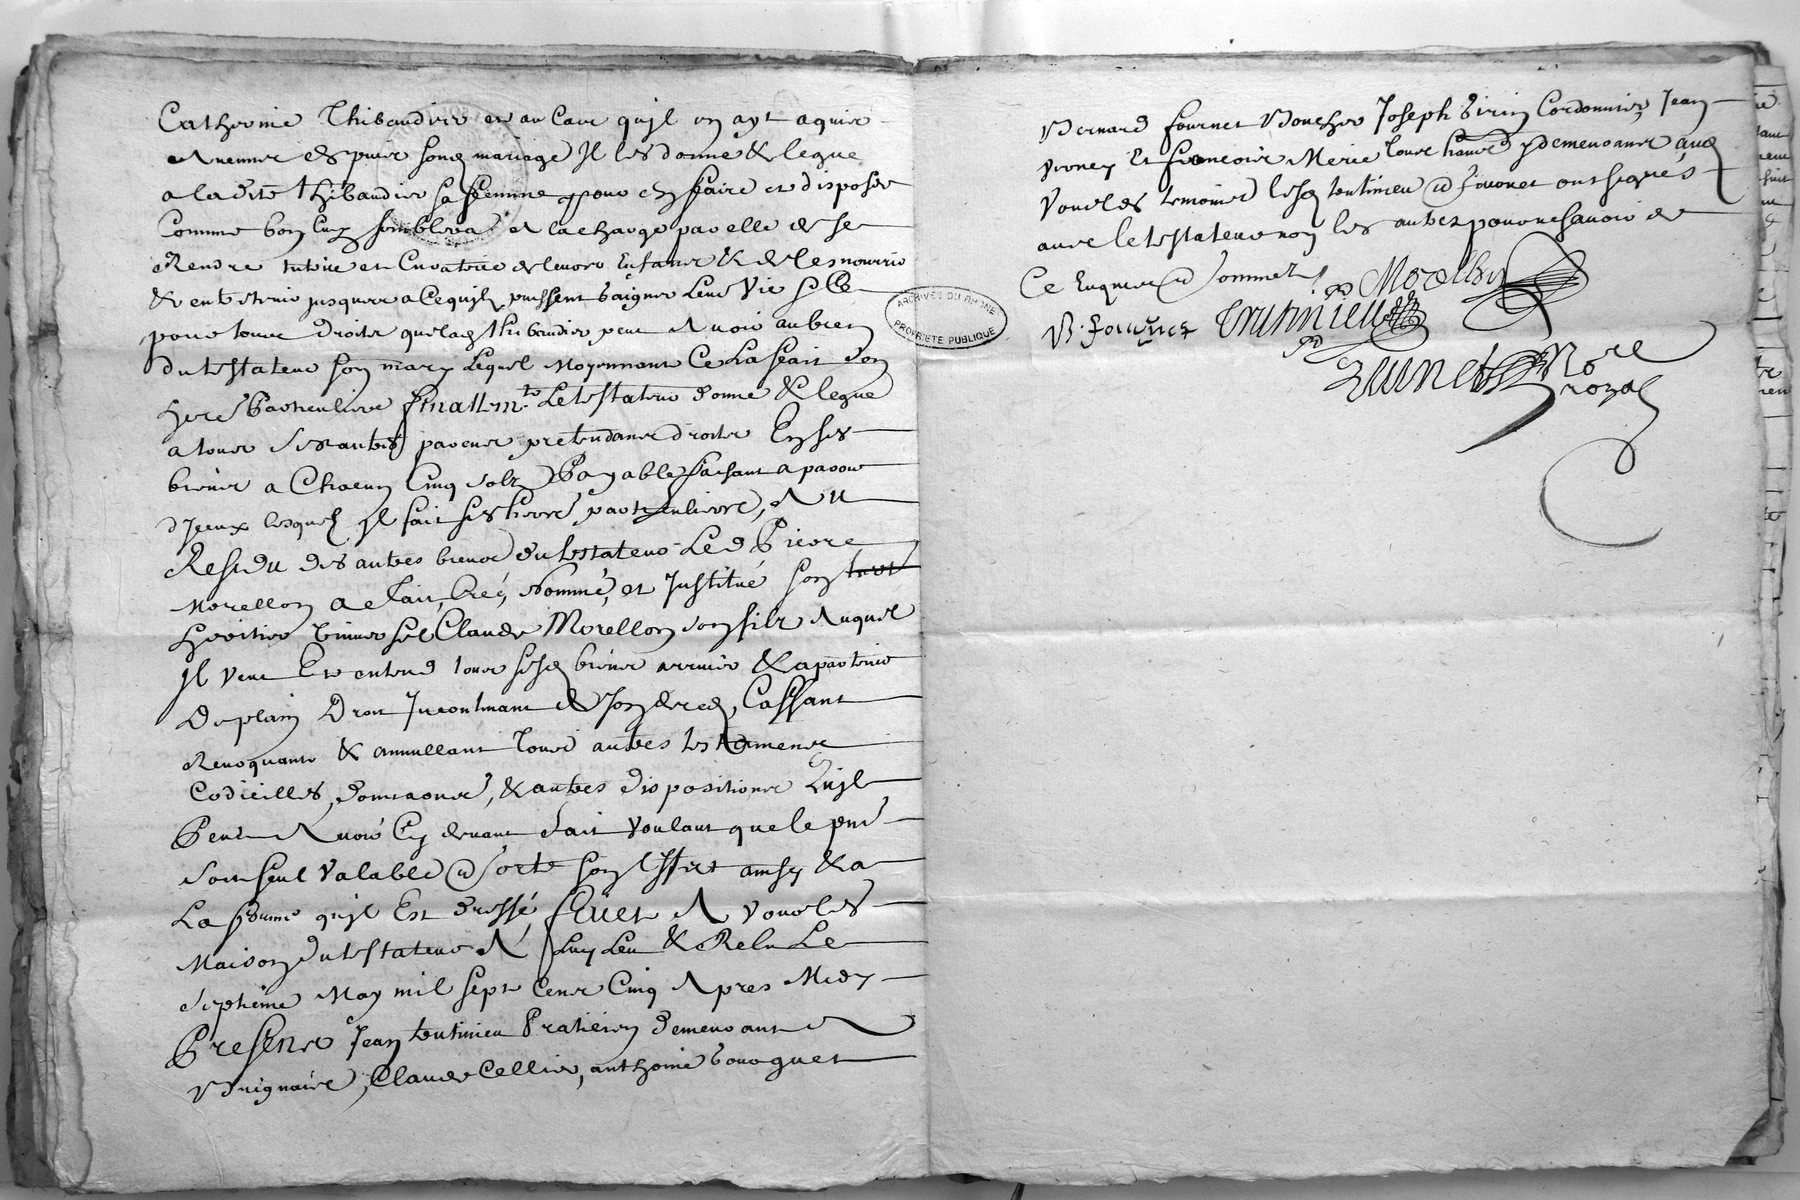 Catherine Thibaudier et au cas qu'jl en ayt aquis
Avenner despuis son mariage Jl les donne & legue
a ladite thibaudier sa femme pour en faire et disposer
Comme bon luy semblera et la charge par elle de se
Rendre tutrice et Curatrice de leurs Enfans & de les nourrir
& entretenir jusques a ce qujlz puissent gaigner leur Vie et Ce
pour tous droits que lad thibaudier peut Avoir aux biens
du testateur son mary lequel Moyennant Ce La fait son
here particuliere finallemt Le testateur donne & legue
a tous ses autres parens pretendans droits En ses
biens a Chacun Cinq solz Payable faisant aparoir
d'Jceux lesquelz Jl fait ses heres particuliers, AU
Residu des autres biens du testateur Led Pierre
Morellon a elait, Créé, Nommé, et Jnstitué son
heritier Universel Claude Morellon son filz Auquel
Jl veut Et entend tous sesd biens arriver & apartenir
De plain Droit Jncontinant Son deced, Cassant
Revoquant & annullant tous autres testamens
Codicilles, donnaons, & autres dispositions Qujl
Peut Avoir Cy devant fait Voulant que le pnt
Soit seul Valable & sorte son Effect ainsy & a
La forme qujl Est dressé, fait A vourles
Maison du testateur A Luy Leu & Relu Le
Septieme May mil sept Cens Cinq Apres Midy
Presens Jean toutinieu Praticien demeurant A
, Claude Cellier, anthoine bouquet
Bernard fournet Boucher Joseph Cordonnier, Jean
Et francois Merie tous hans y demeurans aud
Vourles temoins lesd toutinieu & fournet ont signés
avec le testateur non les autres pour ne savoir de
Ce Enquis & Sommez Morellon
B. fournet
More